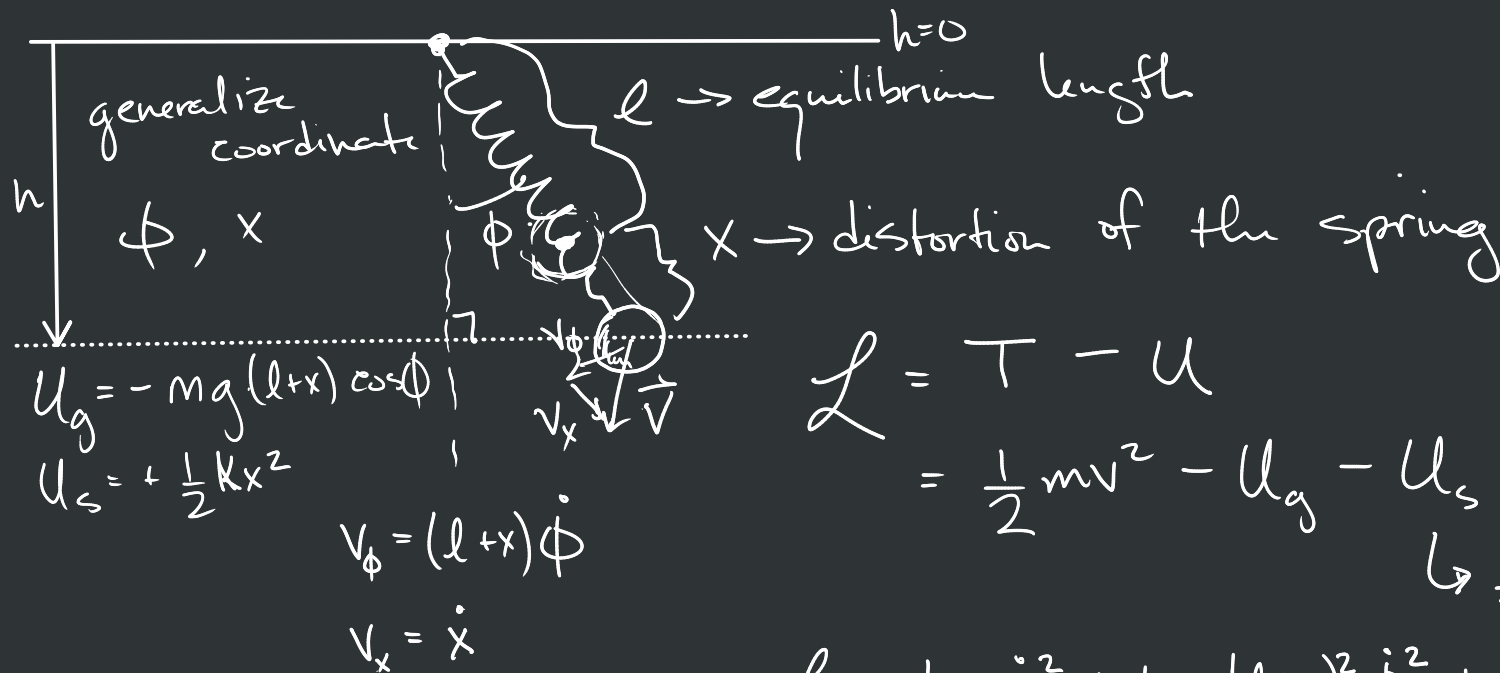 h=0
generalize
coordinate
ϕ, x
h
l → equilibrium length
ϕ
x → distortion of the spring
U_g = - mg(l+x) cosϕ
U_s = + 1/2 Kx²
V_ϕ
V_x
V⃗
ℒ = T - U
= 1/2 mv² - U_g - U_s
↳
V_ϕ = (l+x)ϕ̇
V_x = ẋ